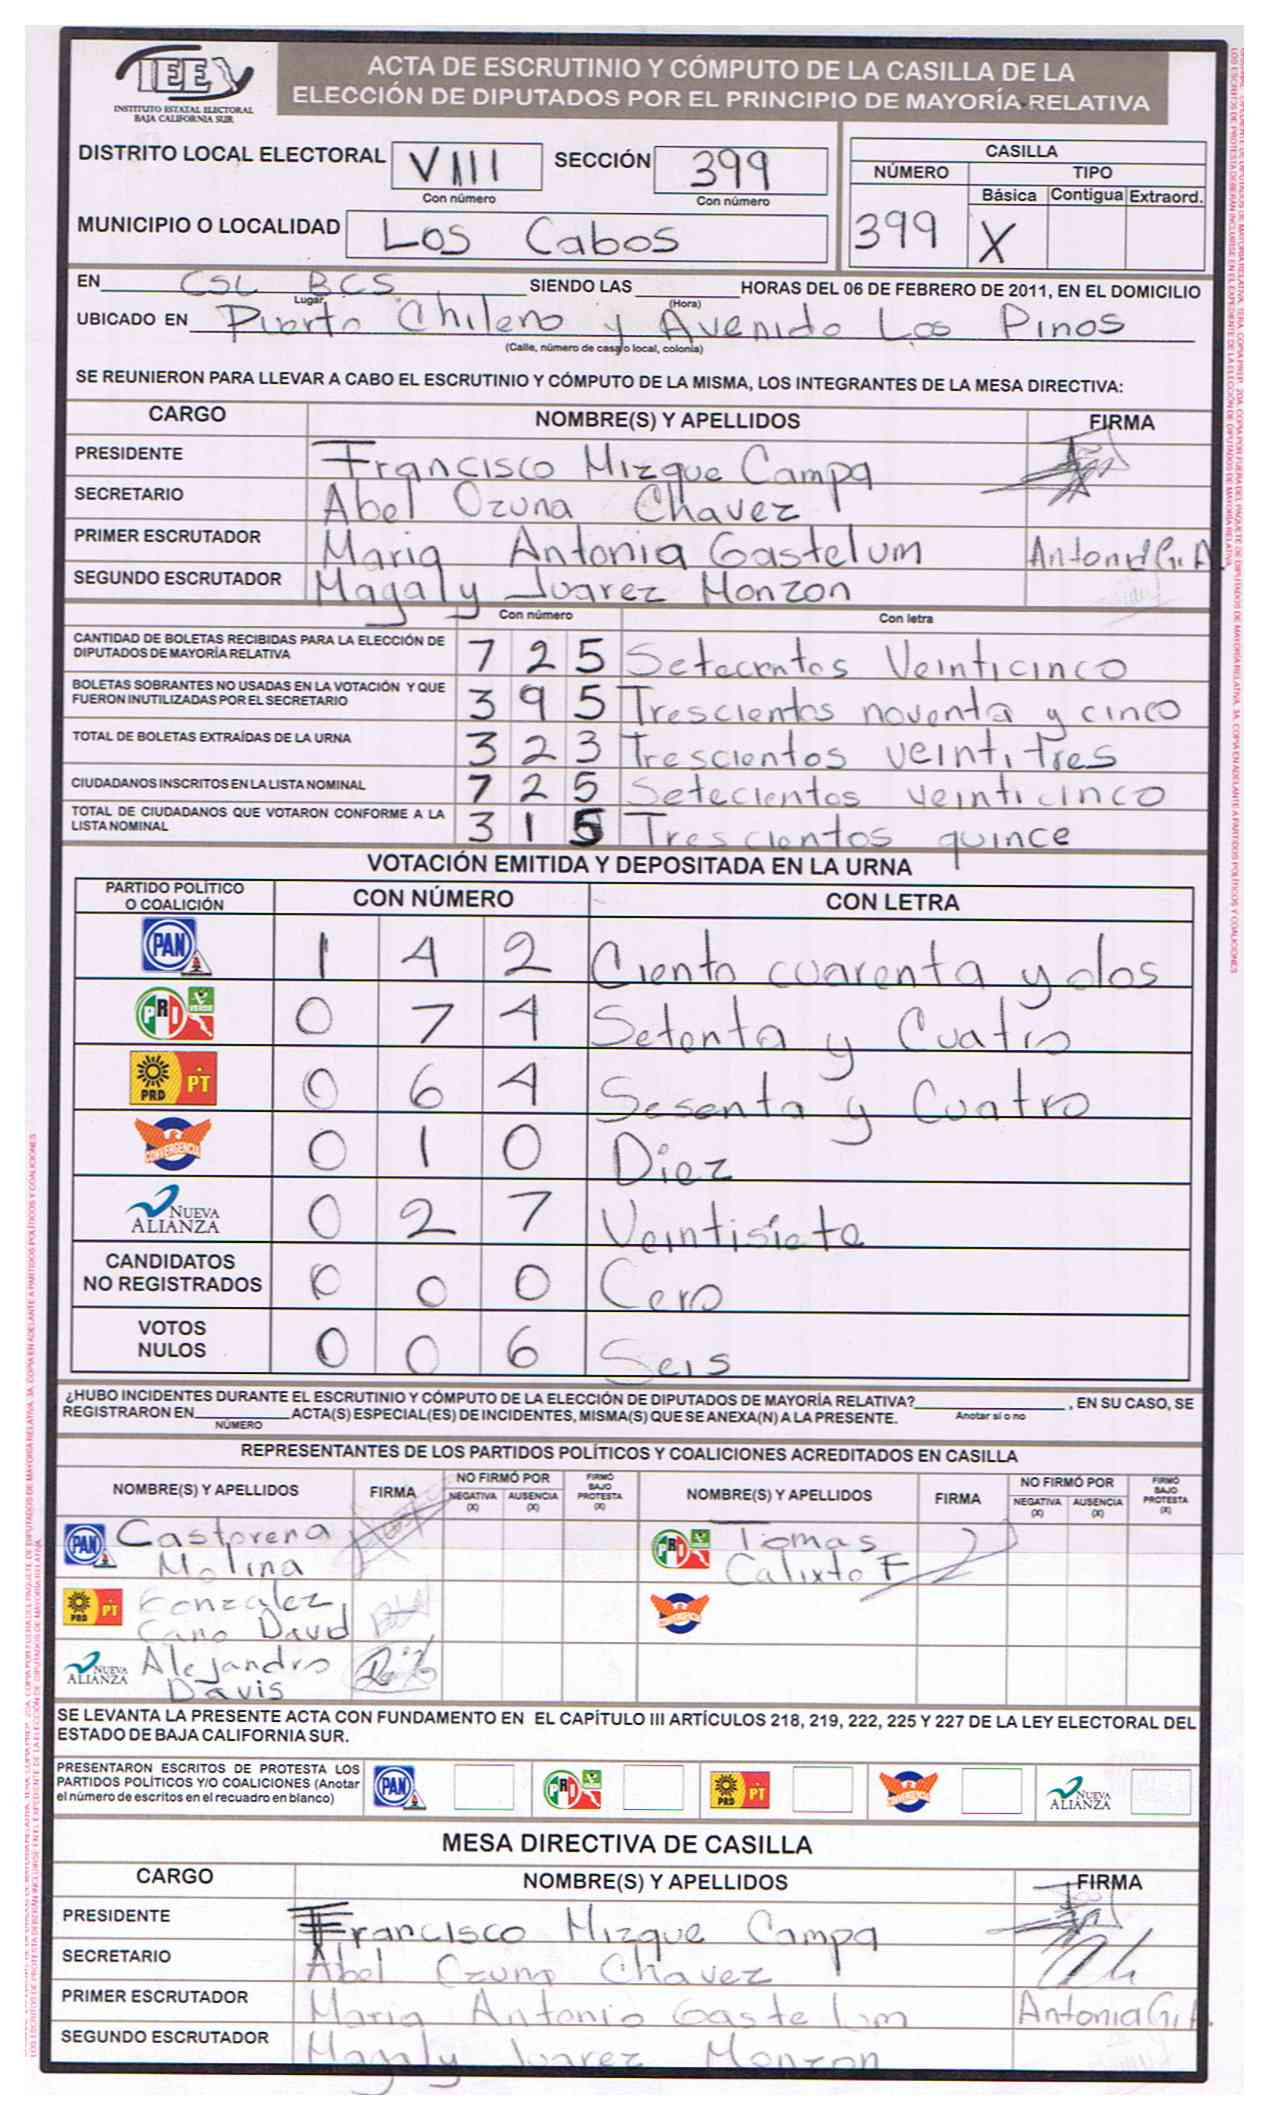 IEE
INSTITUTO ESTATAL ELECTORAL
BAJA CALIFORNIA SUR
ACTA DE ESCRUTINIO Y CÓMPUTO DE LA CASILLA DE LA
ELECCIÓN DE DIPUTADOS POR EL PRINCIPIO DE MAYORÍA RELATIVA
DISTRITO LOCAL ELECTORAL VIII SECCIÓN 399
Con número Con número
MUNICIPIO O LOCALIDAD Los Cabos
CASILLA
NÚMERO TIPO
Básica Contigua Extraord.
399 X
EN CSL BCS SIENDO LAS HORAS DEL 06 DE FEBRERO DE 2011, EN EL DOMICILIO
Lugar (Hora)
UBICADO EN Puerto Chileno y Avenido Los Pinos
(Calle, número de casa o local, colonia)
SE REUNIERON PARA LLEVAR A CABO EL ESCRUTINIO Y CÓMPUTO DE LA MISMA, LOS INTEGRANTES DE LA MESA DIRECTIVA:
CARGO NOMBRE(S) Y APELLIDOS FIRMA
PRESIDENTE Francisco Mizque Campa
SECRETARIO Abel Ozuna Chavez
PRIMER ESCRUTADOR Maria Antonia Gastelum Antonia G. A
SEGUNDO ESCRUTADOR Magaly Juarez Monzon
Con número Con letra
CANTIDAD DE BOLETAS RECIBIDAS PARA LA ELECCIÓN DE
DIPUTADOS DE MAYORÍA RELATIVA 725 Setecentos Veinticinco
BOLETAS SOBRANTES NO USADAS EN LA VOTACIÓN Y QUE
FUERON INUTILIZADAS POR EL SECRETARIO 395 Trescientos noventa y cinco
TOTAL DE BOLETAS EXTRAÍDAS DE LA URNA 323 Trescientos veintitres
CIUDADANOS INSCRITOS EN LA LISTA NOMINAL 725 Setecientos veinticinco
TOTAL DE CIUDADANOS QUE VOTARON CONFORME A LA
LISTA NOMINAL 315 Trescientos quince
VOTACIÓN EMITIDA Y DEPOSITADA EN LA URNA
PARTIDO POLÍTICO
O COALICIÓN CON NÚMERO CON LETRA
PAN 1 4 2 Ciento cuarenta y dos
PRI VERDE 0 7 4 Setenta y Cuatro
PRD PT 0 6 4 Sesenta y Cuatro
CONVERGENCIA 0 1 0 Diez
NUEVA ALIANZA 0 2 7 Veintisiete
CANDIDATOS
NO REGISTRADOS 0 0 0 Cero
VOTOS
NULOS 0 0 6 Seis
¿HUBO INCIDENTES DURANTE EL ESCRUTINIO Y CÓMPUTO DE LA ELECCIÓN DE DIPUTADOS DE MAYORÍA RELATIVA? , EN SU CASO, SE
REGISTRARON EN ACTA(S) ESPECIAL(ES) DE INCIDENTES, MISMA(S) QUE SE ANEXA(N) A LA PRESENTE. Anotar sí o no
NÚMERO
REPRESENTANTES DE LOS PARTIDOS POLÍTICOS Y COALICIONES ACREDITADOS EN CASILLA
NOMBRE(S) Y APELLIDOS FIRMA NO FIRMÓ POR NEGATIVA (X) AUSENCIA (X) FIRMÓ BAJO PROTESTA (X) NOMBRE(S) Y APELLIDOS FIRMA NO FIRMÓ POR NEGATIVA (X) AUSENCIA (X) FIRMÓ BAJO PROTESTA (X)
PAN Castorena Molina PRI VERDE Tomas Calixto F
PRD PT Gonzalez Cano David CONVERGENCIA
NUEVA ALIANZA Alejandro Davis
SE LEVANTA LA PRESENTE ACTA CON FUNDAMENTO EN EL CAPÍTULO III ARTÍCULOS 218, 219, 222, 225 Y 227 DE LA LEY ELECTORAL DEL
ESTADO DE BAJA CALIFORNIA SUR.
PRESENTARON ESCRITOS DE PROTESTA LOS
PARTIDOS POLÍTICOS Y/O COALICIONES (Anotar
el número de escritos en el recuadro en blanco) PAN PRI VERDE PRD PT CONVERGENCIA NUEVA ALIANZA
MESA DIRECTIVA DE CASILLA
CARGO NOMBRE(S) Y APELLIDOS FIRMA
PRESIDENTE Francisco Mizque Campa
SECRETARIO Abel Ozuna Chavez
PRIMER ESCRUTADOR Maria Antonio Gastelum Antonia G. A.
SEGUNDO ESCRUTADOR Magaly Juarez Monzon